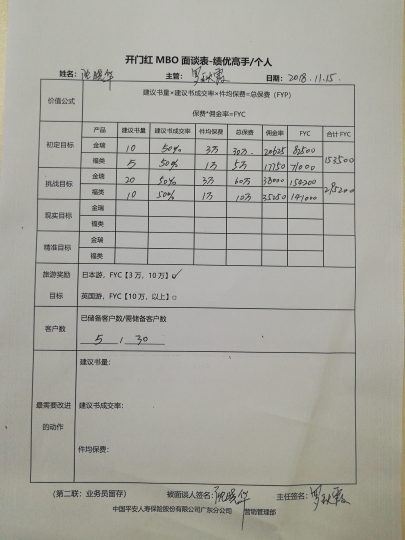 开门红 MBO 面谈表-绩优高手/个人
姓名: 主管: 日期: 2018.11.15.
价值公式
建议书量×建议书成交率×件均保费=总保费（FYP）
保费*佣金率=FYC
产品 建议书量 建议书成交率 件均保费 总保费 佣金率 FYC 合计FYC
初定目标
金瑞 10 50% 3万 30万 20625 82500
福类 5 50% 1万 5万 17750 71000
153500
挑战目标
金瑞 20 50% 3万 60万 38000 154200
福类 10 50% 1万 10万 35250 141000
295200
现实目标
金瑞
福类
精准目标
金瑞
福类
旅游奖励
目标
日本游，FYC【3万，10万】✓
英国游，FYC【10万，以上】□
客户数
已储备客户数/需储备客户数
5 / 30
最需要改进
的动作
建议书量：
建议书成交率：
件均保费：
（第二联：业务员留存） 被面谈人签名: 主任签名:
中国平安人寿保险股份有限公司广东分公司 营销管理部